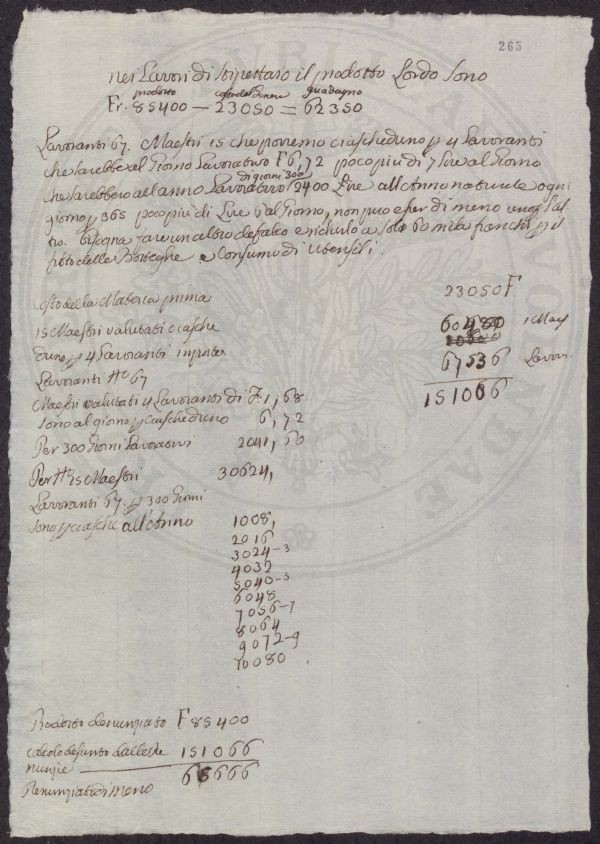 265
nei Lavori di bijettaro il prodotto Lordo sono
prodotto costo del genere guadagno
Fr. 85400 — 23050 = 62350
Lavoranti 67. Maestri 15 che porremo ciascheduno p 4 Lavoranti
che sarebbe al Giorno Lavorativo F 6,72 poco più di 7 lire al Giorno
di giorni 300
che sarebbero all anno Lavorativo 2400 Lire all Anno naturale ogni
giorno p 365 poco più di Lire 5 al Giorno, non può esser di meno
tro. bisogna fare un altro defalco e ridurlo a solo 60 mila franchi p il
fitto delle Botteghe e Consumo di Utensili.
Costo della Materia prima 23050 F
15 Maestri valutati ciasche 60480 Maes
duno p 4 Lavoranti importa
Lavoranti N° 67 67536 Lavor.
151066
Maestri valutati 4 Lavoranti di F. 1,68
sono al giorno p ciascheduno 6,72
Per 300 Giorni Lavorativi 2041,60
Per N° 15 Maestri 30624,
Lavoranti 67. p 300 Giorni
sono p ciasche all'Anno 1008,
2016
3024-3
4032
5040-5
6048
7056-7
8064
9072-9
10080
Prodotto denunziato F 85400
calcolo desunto dalle de 151066
nunzie 65666
Denunziato di meno